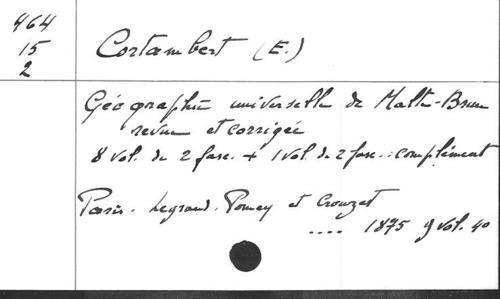 464
15
2
Cortambert (E.)
Géographie universelle de Malte-Brun
revue et corrigée
8 vol. de 2 fasc. + 1 vol. de 2 fasc. : complément
Paris. Legrand. Pomey et Crouzet
.... 1875 9 vol. 4o